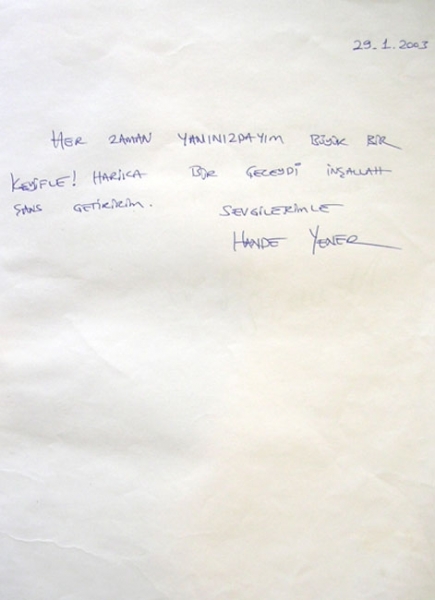 29.1.2003
HER ZAMAN YANINIZDAYIM BÜYÜK BİR
KEYİFLE! HARİKA BİR GECEYDİ İNŞALLAH
ŞANS GETİRİRİM. SEVGİLERİMLE
HANDE YENER